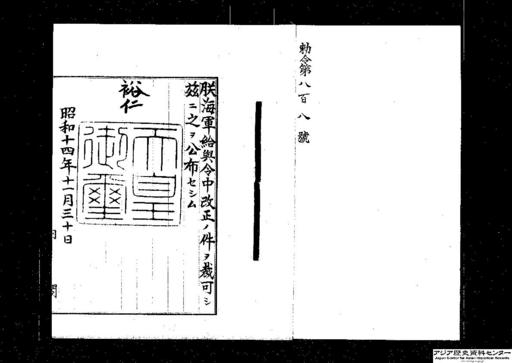 勅令第八百八號
朕海軍給與令中改正ノ件ヲ裁可シ
茲ニ之ヲ公布セシム
裕仁
天皇御璽
昭和十四年十一月三十日
アジア歴史資料センター
Japan Center for Asian Historical Records